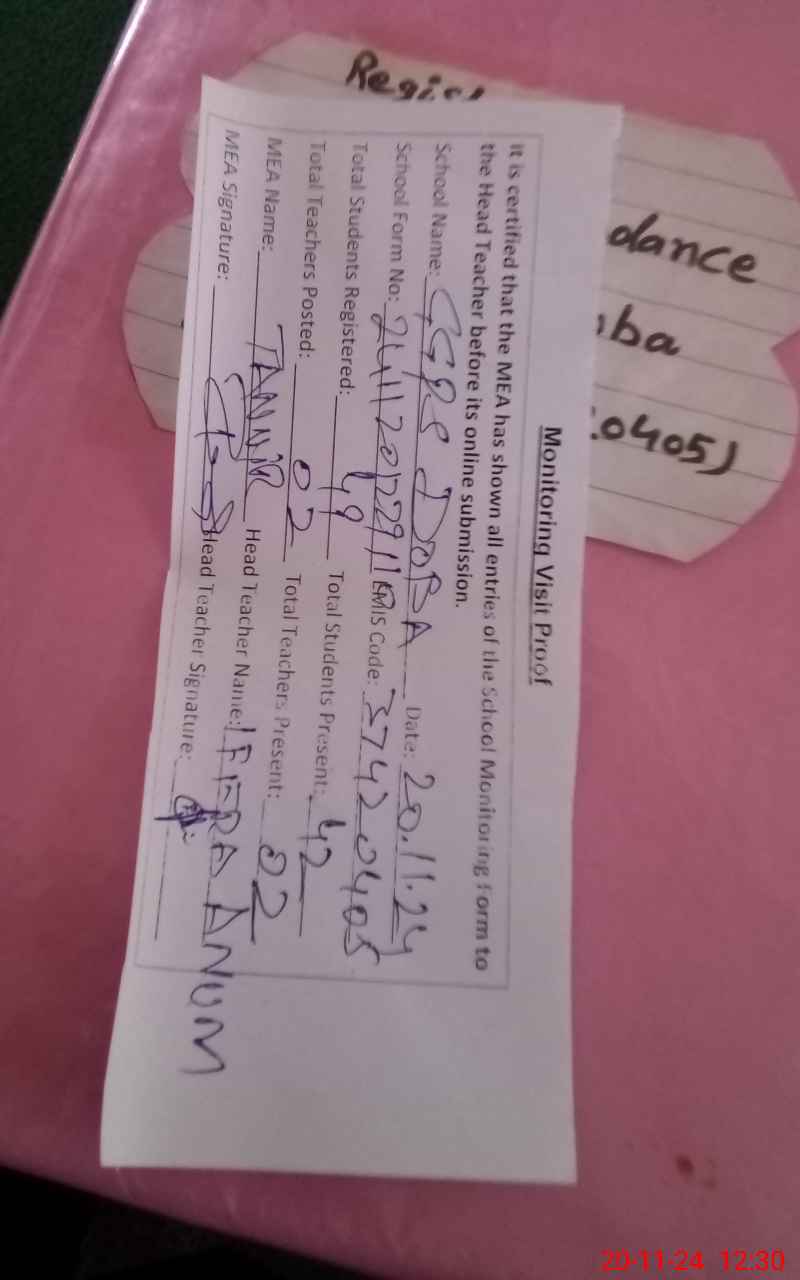 dance
ba
0405)
Monitoring Visit Proof
It is certified that the MEA has shown all entries of the School Monitoring Form to
the Head Teacher before its online submission.
School Name: GGPS DOBA Date: 20.11.24
School Form No: EMIS Code: 37420405
Total Students Registered: 49 Total Students Present: 42
Total Teachers Posted: 02 Total Teachers Present: 02
MEA Name: Head Teacher Name: IFFRA ANUM
MEA Signature: Head Teacher Signature:
20-11-24 12:30